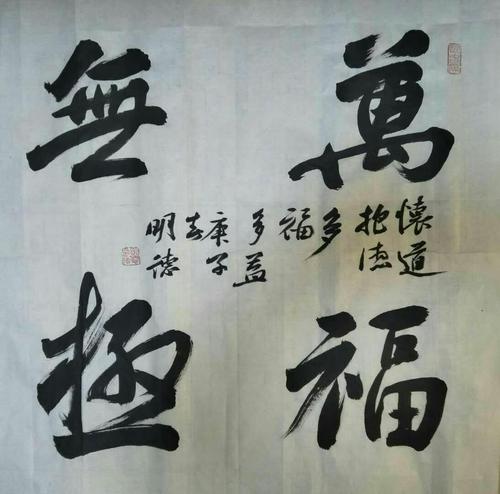 萬福
無極
懷道
抱德
多
福
多益
庚子
春
明德